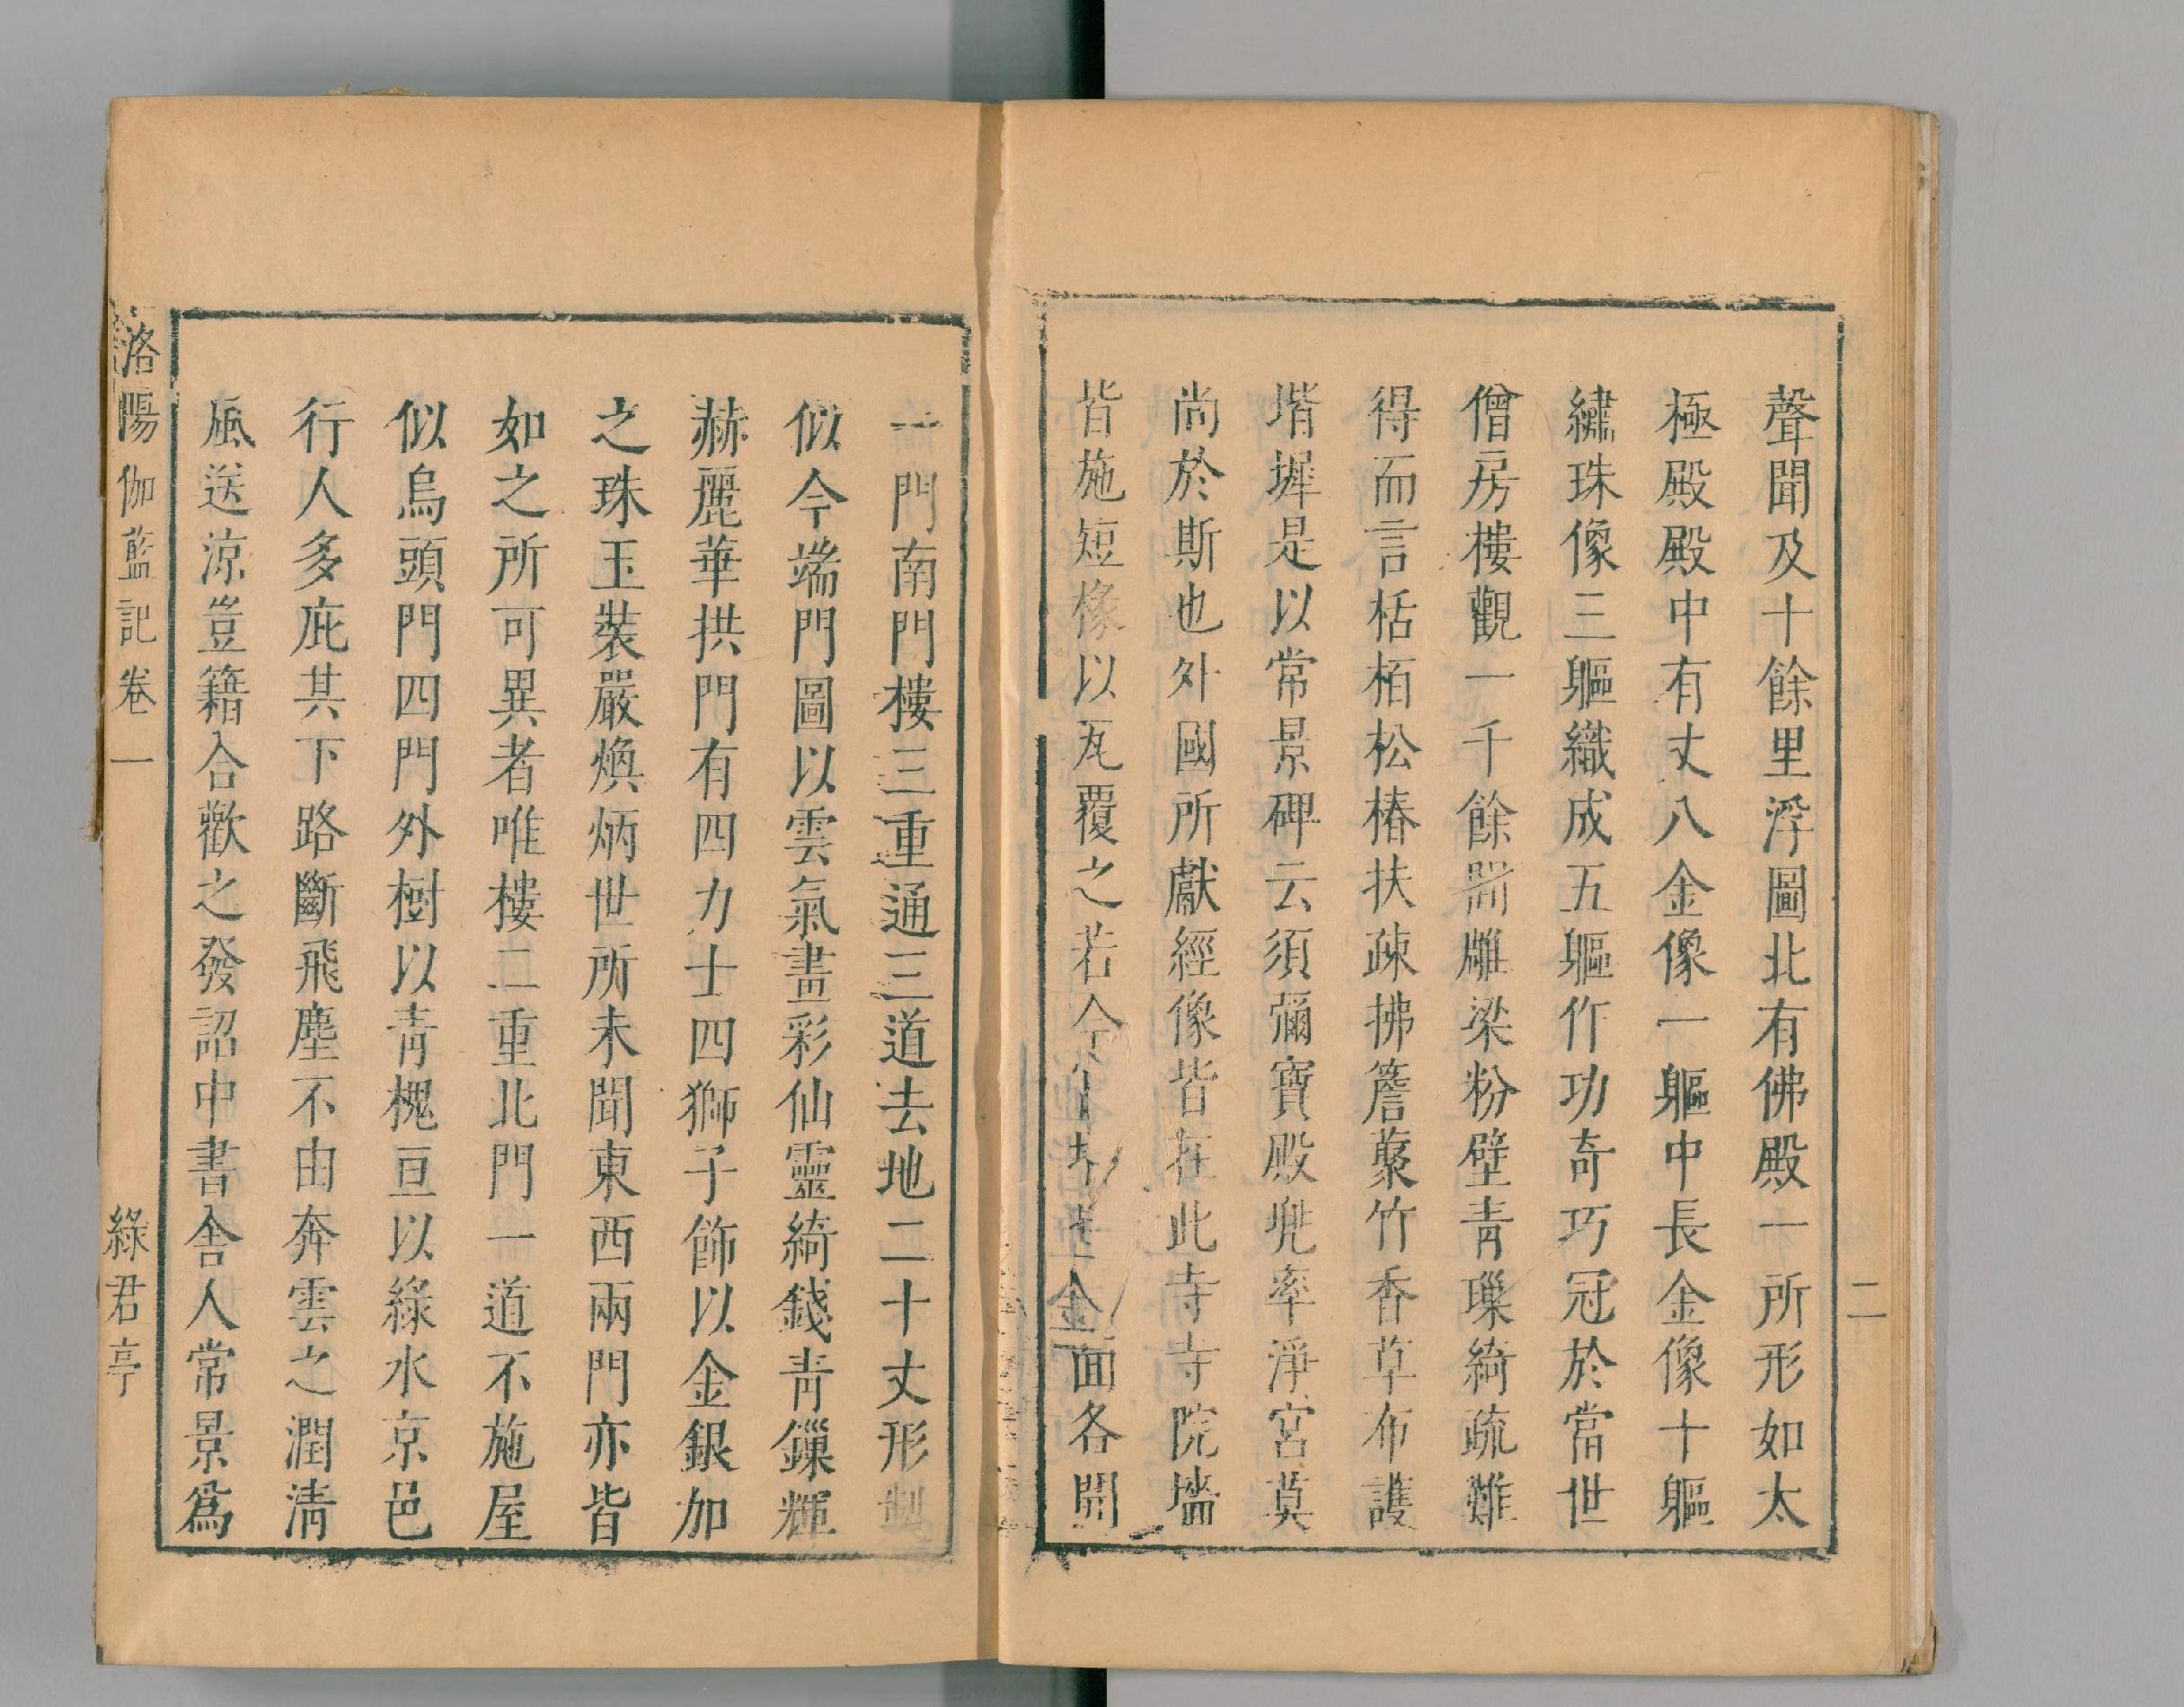 聲聞及十餘里浮圖北有佛殿一所形如太
極殿殿中有丈八金像一軀中長金像十軀
繡珠像三軀織成五軀作功奇巧冠於當世
僧房樓觀一千餘間雕梁粉壁青璅綺疏難
得而言栝栢松椿扶疎拂簷藂竹香草布護
堦墀是以常景碑云須彌寶殿兜率淨宮莫
尚於斯也外國所獻經像皆在此寺寺院墻
皆施短椽以瓦覆之若今面各開
二
一門南門樓三重通三道去地二十丈形制
似今端門圖以雲氣畫彩仙靈綺錢青鏁輝
赫麗華拱門有四力士四獅子飾以金銀加
之珠玉裝嚴煥炳世所未聞東西兩門亦皆
如之所可異者唯樓二重北門一道不施屋
似烏頭門四門外樹以青槐亘以綠水京邑
行人多庇其下路斷飛塵不由奔雲之潤清
風送涼豈籍合歡之發詔中書舍人常景爲
洛陽伽藍記卷一
綠君亭